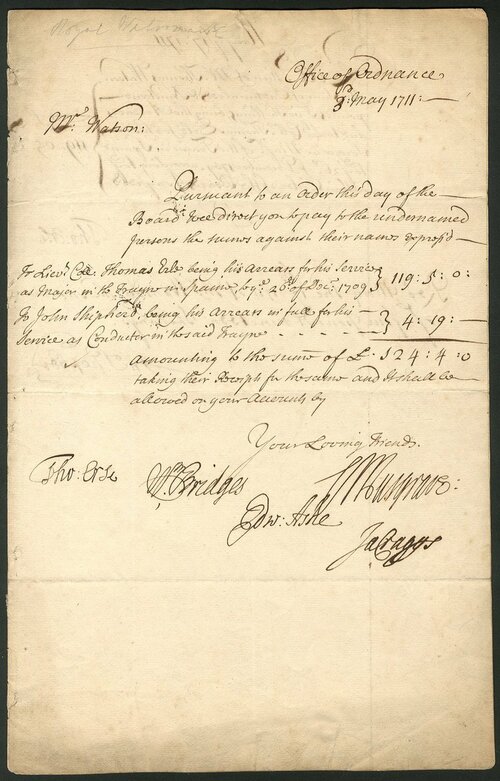 Office of Ordnance
3d: May 1711:
Mr. Watson:
Pursuant to an Order this day of the
Board Wee direct you to pay to the undernamed
persons the sumes against their names exprest
To Lievt. Coll. Thomas Erle being his Arrears for his Service
as Major in the Trayne in Spaine to ye. 26th. of Dec: 1709 } 119: 5: 0:
To John Shepherd being his Arrears in full for his
Service as Conductor in the said Trayne } 4: 19:
amounting to the sume of £. 124: 4: 0
taking their Receipts for the same and it shall be
allowed on your Accounts by
Your Loving Friends.
Tho: Erle
Wm Bridges
Musgrave:
Edw: Ashe
Ja Craggs